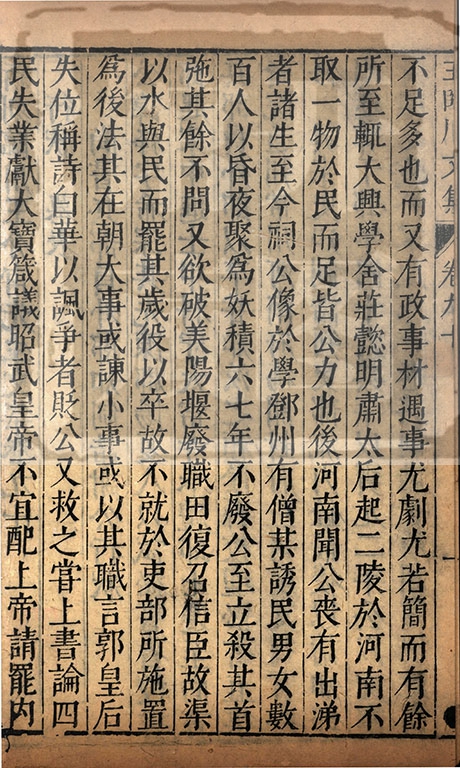 王臨川文集 卷九十
不足多也而又有政事材遇事尤劇尤若簡而有餘
所至輒大興學舍莊懿明肅太后起二陵於河南不
取一物於民而足皆公力也後河南聞公喪有出涕
者諸生至今祠公像於學鄧州有僧某誘民男女數
百人以昏夜聚為妖積六七年不廢公至立殺其首
弛其餘不問又欲破美陽堰廢職田復召信臣故渠
以水與民而罷其歲役以卒故不就於吏部所施置
為後法其在朝大事或諫小事或以其職言郭皇后
失位稱詩白華以諷爭者貶公又救之嘗上書論四
民失業獻大寶箴議昭武皇帝不宜配上帝請罷內